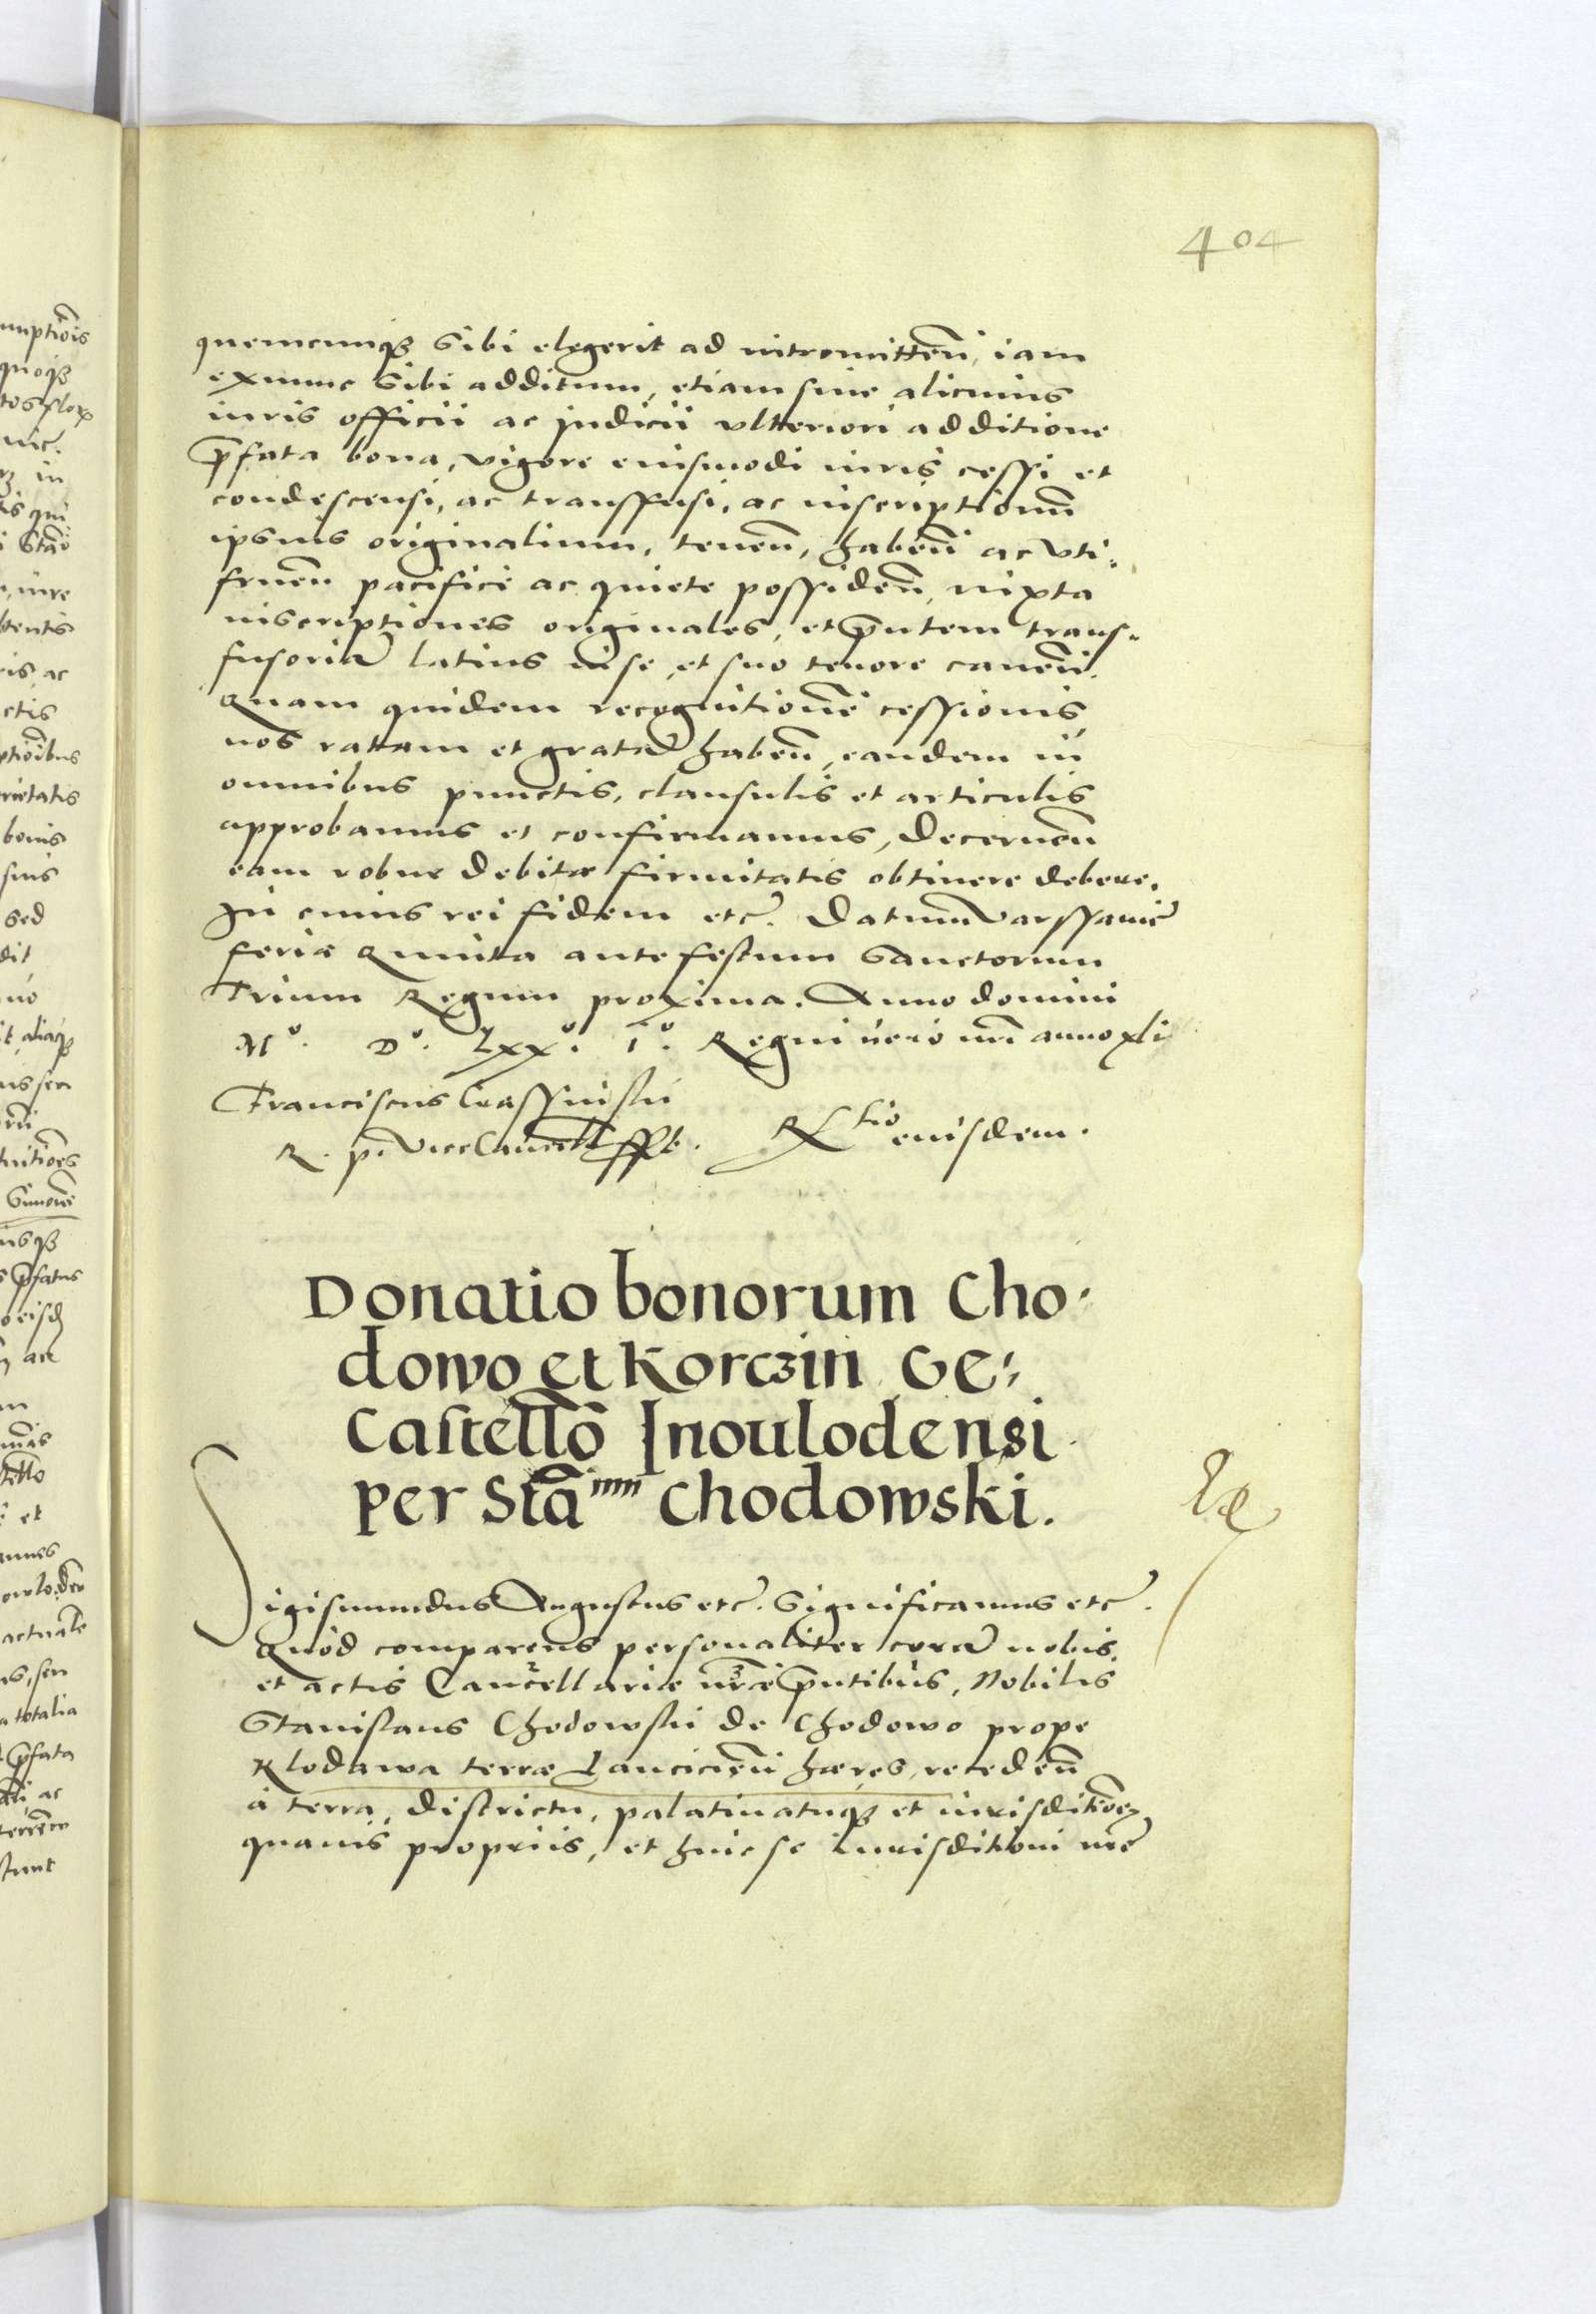 404
quemcunqȝ sibi elegerit ad intromitten̄, iam
exnunc sibi additum, etiam sine alicuius
iuris officii ac judicii vlteriori additione
p̄fata bona, vigore eiusmodi iuris cessi et
condescensi, ac transfusi, ac inscriptionū
ipsius originalium, tenen̄, haben̄ ac vti-
fruen̄ pacifice ac quiete possiden̄, iuxta
inscriptiones originales, et p̄ntem trans-
fusoriā latius in se, et suo tenore canen̄.
Quam quidem recognitionē cessionis
nos rattam et gratā haben̄, eandem in
omnibus punctis, clausulis et articulis
approbamus et confirmamus, Decernen̄
eam robur debitæ firmitatis obtinere debere.
In cuius rei fidem etc. Datum Varssaviæ
feria Quinta ante festum Sanctorum
Trium Regum proxima. Anno domini
Mº. Dº. Lxxº. iº. Regni vero nr̄i anno xli
Franciscus Crassinski
R. p. ViceCancell. sst. Rltio eiusdem.
Donatio bonorum Cho-
dowo et Korczin Ge.
Castellō Inoulodensi
per Stāum Chodowski.
Sigismundus Augustus etc. Significamus etc.
Quod comparens personaliter corā nobis
et actis Cancellariæ nr̄æ p̄ntibus, Nobilis
Stanislaus Chodowski de Chodowo prope
Klodawa terræ Lancicien̄ hæres, receden̄
à terra, districtu, palatinatuqȝ et iurisditione
quauis propriis, et huic se Iurisditioni nr̄e